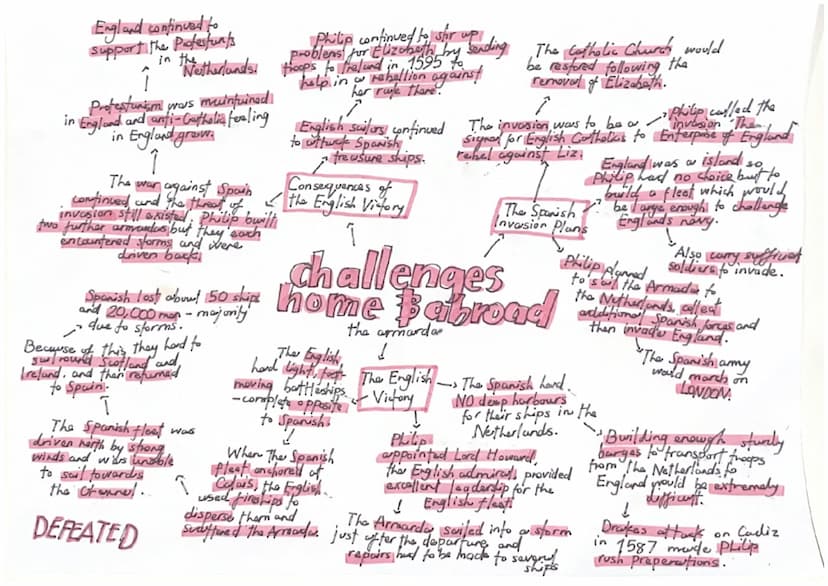 challenges
home & abroad
the armarda
Consequences of
the English Victory
English sailors continued
to attack Spanish
treasure ships.
Philip continued to stir up
problems for Elizabeth by sending
troops to Ireland in 1595 to
help in a rebellion against
her rule there.
The war against Spain
continued and the threat of
invasion still existed. Philip built
two further armardas but they each
encountered storms and were
driven back.
Protestunism was maintained
in England and anti-Catholic feeling
in England grew.
England continued to
support the Protestants
in the
Netherlands.
The Spanish
Invasion Plans
The invasion was to be a
signal for English Catholics to
rebel against Liz.
The Catholic Church would
be restored following the
removal of Elizabeth.
Philip called the
invasion 'The
Enterprise of England'
England was a island so
Philip had no choice but to
build a fleet which would
be large enough to challenge
Englands navy.
Also carry sufficient
soldiers to invade.
Philip planned
to sail the Armarda to
the Netherlands, collect
additional Spanish forces and
then invade England.
The Spanish army
would march on
LONDON.
The English
Victory
The Spanish had
NO deep harbours
for their ships in the
Netherlands.
Building enough sturdy
barges to transport troops
from the Netherlands to
England would be extremely
difficult.
Drakes attack on Cadiz
in 1587 made Philip
rush preperations.
Philip
appointed Lord Howard,
the English admiral, provided
excellent leadership for the
English fleet.
The Armarda sailed into a storm
just after the departure and
repairs had to be made to several
ships
The English
had light, fast-
moving battleships
- complete opposite
to Spanish.
When the Spanish
fleet anchored at
Calais, the English
used fireships to
disperse them and
scattered the Armarda.
The Spanish fleet was
driven north by strong
winds and was unable
to sail towards
the Channel.
Because of this, they had to
sail round Scotland and
Ireland, and then returned
to Spain.
Spanish lost about 50 ships
and 20,000 men - majority
due to storms.
DEFEATED